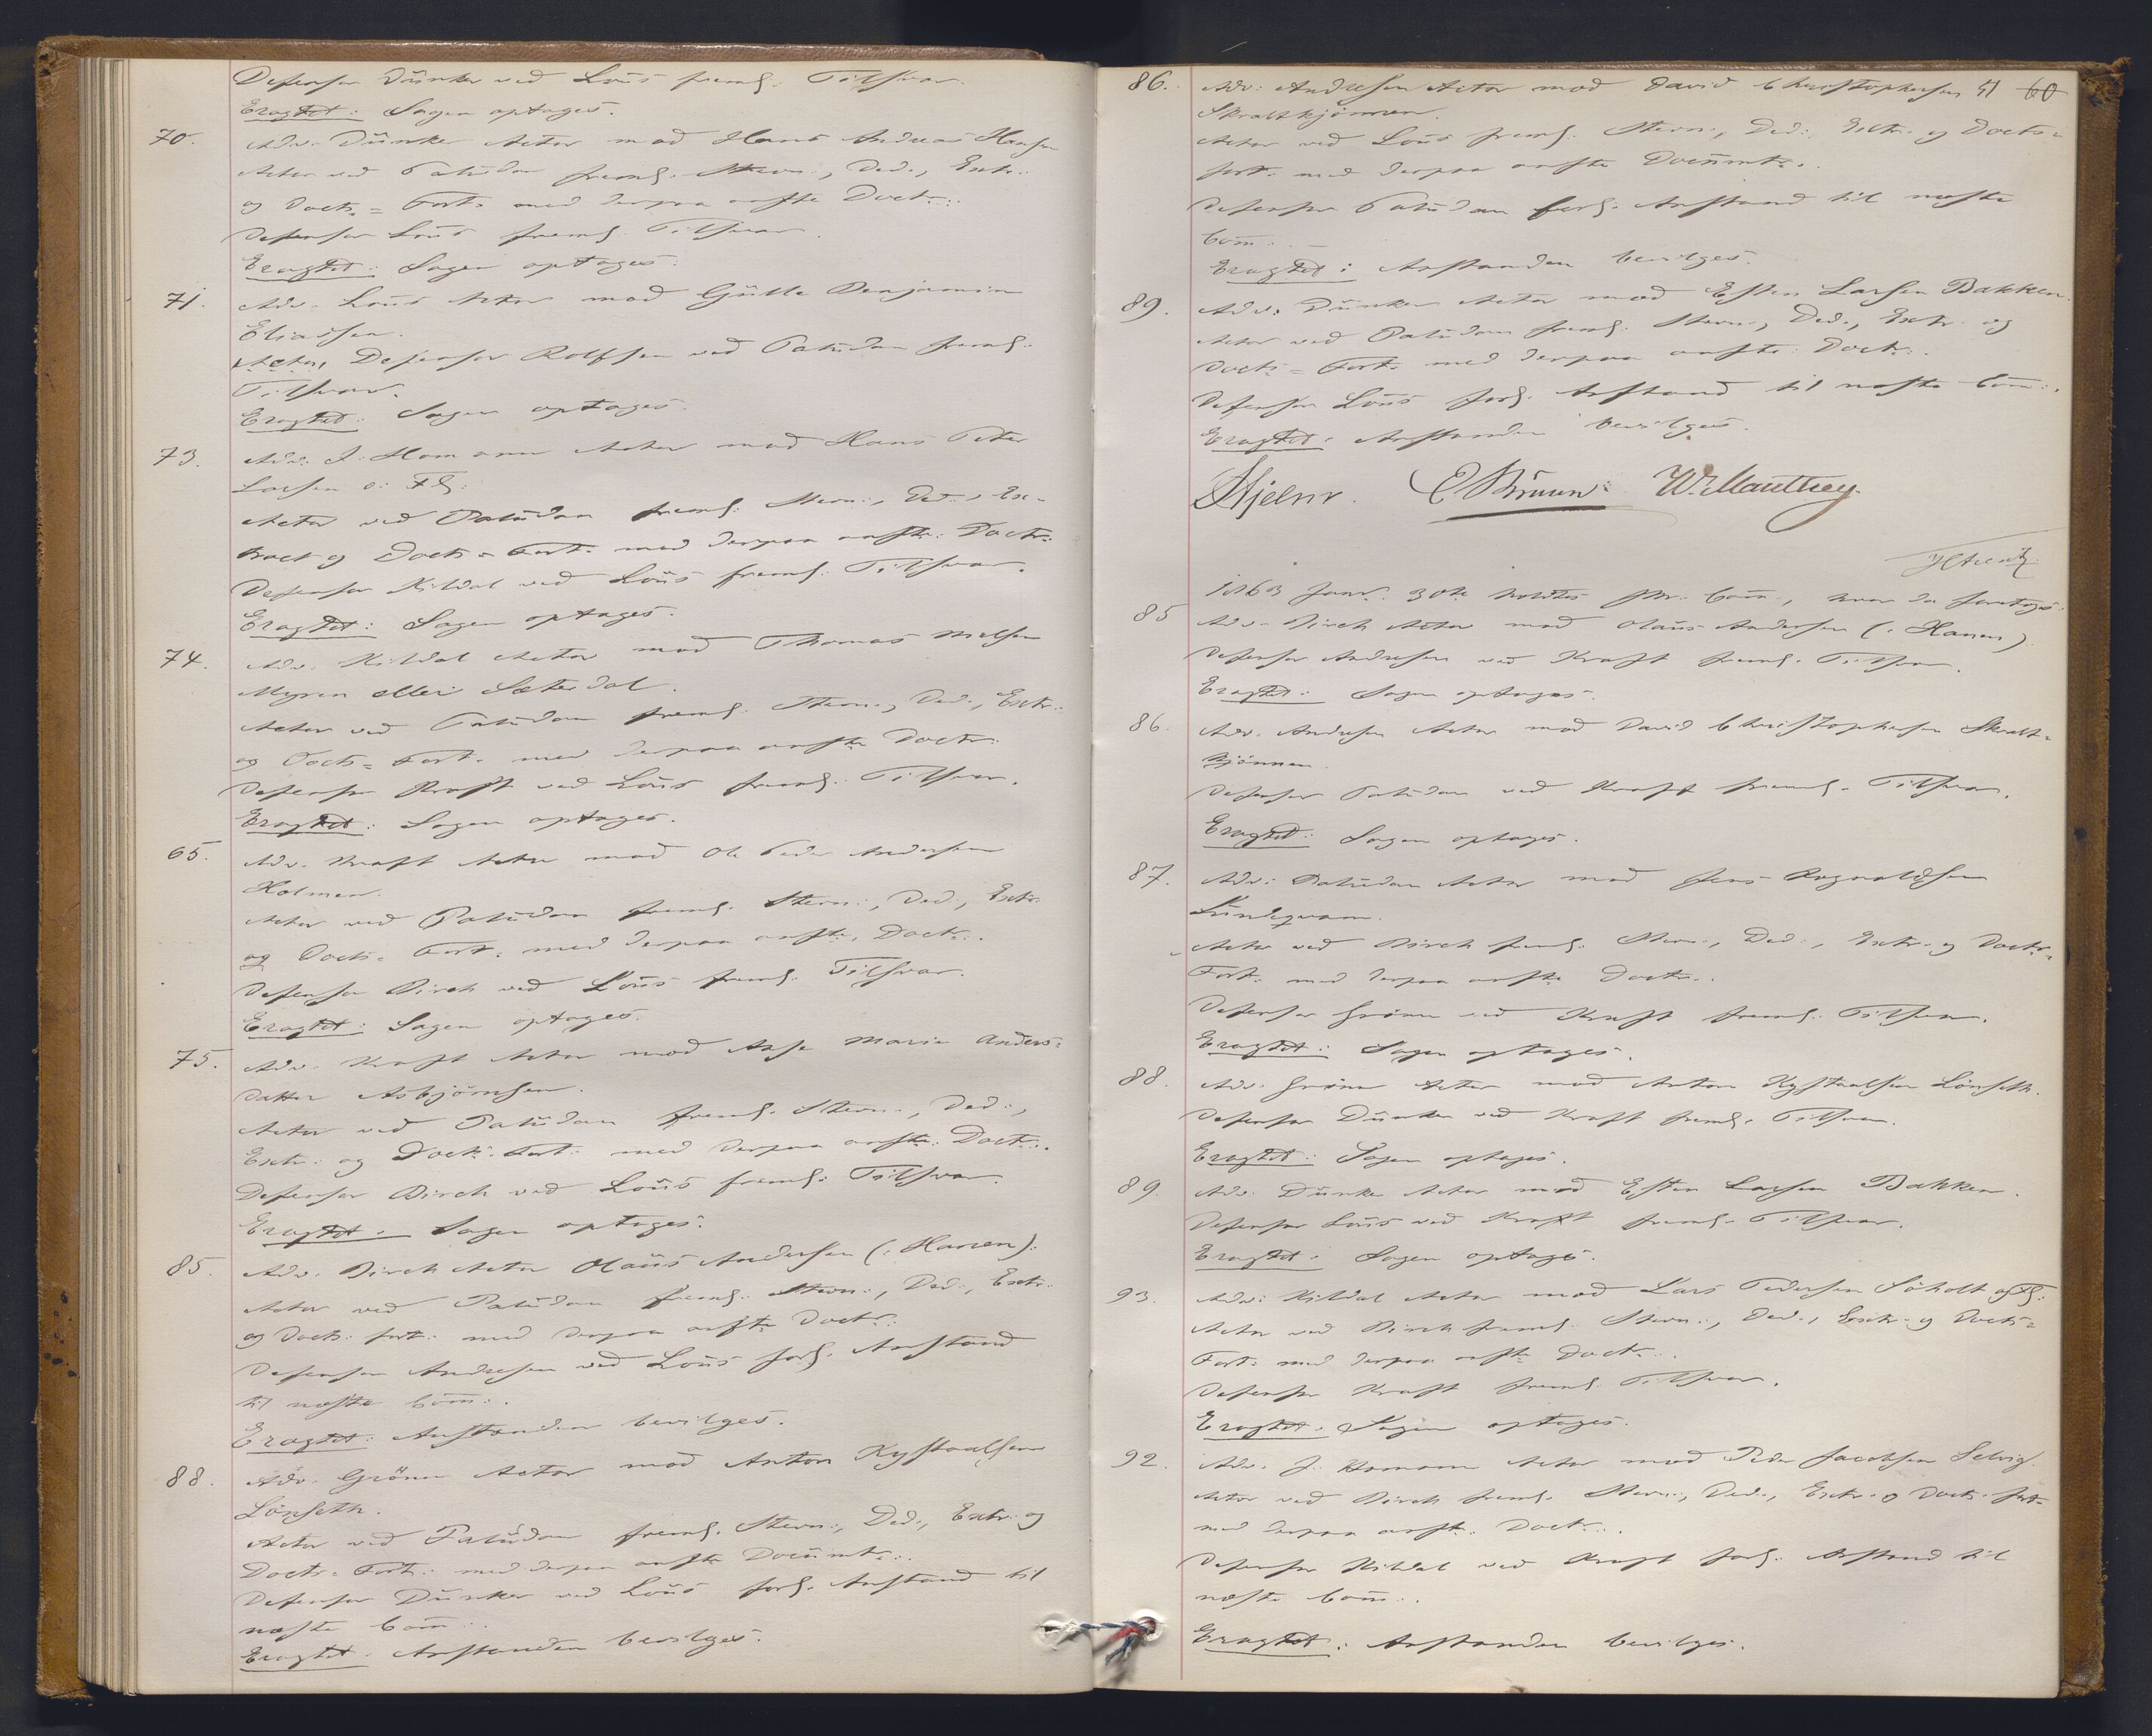 Defensor Dünker ved Loüs freml. Tilsvar.
Eragtet: Sagen optages.
70. Adv. Dünker Actor mod Hans Andreas Hansen
Actor ved Palüdan freml. Stevn., Ded., Extr.
og Docts= Fort. med derpaa anfte Doctr.
Defensor Loüs freml. Tilsvar.
Eragtet: Sagen optages.
71. Adv. Loüs Actor mod Gülle Benjamin
Eliassen.
Defensor Rolfsen ved Palüdan freml.
Tilsvar.
Eragtet: Sagen optages.
73. Adv. J. Homann Actor mod Hans Peter
Larsen o: Fl:
Actor ved Palüdan freml. Stevn., Ded., Ex-
tract og Docts= Fort. med derpaa anfte: Doctr.
Defensor Kildal ved Loüs freml. Tilsvar.
Eragtet: Sagen optages.
74. Adv. Kildal Actor mod Thomas Nielsen
Myren eller Sæterdal.
Actor ved Palüdan freml. Stevn., Ded., Extr.
og Docts= Fort. med derpaa anfte Doctr.
Defensor Kraft ved Loüs freml. Tilsvar.
Eragtet: Sagen optages.
65. Adv. Kraft Actor mod Ole Peder Andersen
Holmen.
Actor ved Palüdan freml. Stevn., Ded., Extr.
og Docts= Fort. med derpaa anfte. Doctr.
Defensor Birch ved Loüs freml. Tilsvar.
Eragtet: Sagen optages.
75. Adv. Kraft Actor mod Anne Marie Anders=
datter Asbjörnsen.
Actor ved Palüdan freml. Stevn., Ded.,
Extr. og Docts. Fort. med derpaa anfte: Doctr.
Defensor Birch ved Loüs freml. Tilsvar.
Eragtet: Sagen optages.
85. Adv. Birch Actor Olaüs Andersen (: Hanen).
Actor ved Palüdan freml. Stevn., Ded., Extr.
og Docts. fort. med derpaa anfte Doctr.
Defensor Andresen ved Loüs forl. Anstand
til næste Com:.
Eragtet: Anstanden bevilges.
88. Adv. Grönn Actor mod Anton Kystvolsen
Lönseth.
Actor ved Palüdan freml. Stevn., Ded., Extr. og
Docts= Fort. med derpaa anfte Documtr.
Defensor Dünker ved Loüs forl. Anstand til
næste Com:.
Eragtet: Anstanden bevilges.
86. Adv. Andresen Actor mod David Christophersen 51 60
Skraltkjönnen.
Actor ved Loüs freml. Stevn., Ded., Extr. og Docts=
fort. med derpaa anfte Documtr.
Defensor Palüdan forl. Anstand til næste
Com:.
Eragtet: Anstanden bevilges.
89. Adv. Dünker Actor mod Esten Larsen Bakken.
Actor ved Palüdan freml. Stevn., Ded., Extr. og
Docts= Fort. med derpaa anfte: Doctr.
Defensor Loüs forl. Anstand til næste Com:.
Eragtet: Anstanden bevilges.
Hjelm. E Bruun. W. Manthey.
1863 Janr. 30te holdtes Com., hvor da foretoges:
85 Adv. Birch Actor mod Olaüs Andersen (: Hanen).
Defensor Andresen ved Kraft freml. Tilsvar.
Eragtet: Sagen optages.
86. Adv. Andresen Actor mod David Christophersen Skralt=
kjönnen.
Defensor Palüdan ved Kraft freml. Tilsvar.
Eragtet: Sagen optages.
87. Adv. Palüdan Actor mod Jens Ragnvaldsen
Lündqvam.
Actor ved Birch freml. Stevn., Ded., Extr. og Docts=
Fort. med derpaa anfte Doctr.
Defensor Grönn ved Kraft freml. Tilsvar.
Eragtet: Sagen optages.
88. Adv. Grönn Actor mod Anton Kystvolsen Lönseth.
Defensor Dünker ved Kraft freml. Tilsvar.
Eragtet: Sagen optages.
89. Adv. Dünker Actor mod Esten Larsen Bakken.
Defensor Loüs ved Kraft freml. Tilsvar.
Eragtet: Sagen optages.
93. Adv. Kildal Actor mod Lars Pedersen Söholt og Fl:
Actor ved Birch freml. Stevn., Ded., Extr. og Docts=
Fort. med derpaa anfte Doctr.
Defensor Kraft freml. Tilsvar.
Eragtet: Sagen optages.
92. Adv. J. Homann Actor mod Peder Jacobsen Selvig.
Actor ved Birch freml. Stevn., Ded., Extr. og Docts. fort.
med derpaa anfte: Doctr.
Defensor Kildal ved Kraft forl. Anstand til
næste Com:.
Eragtet: Anstanden bevilges.